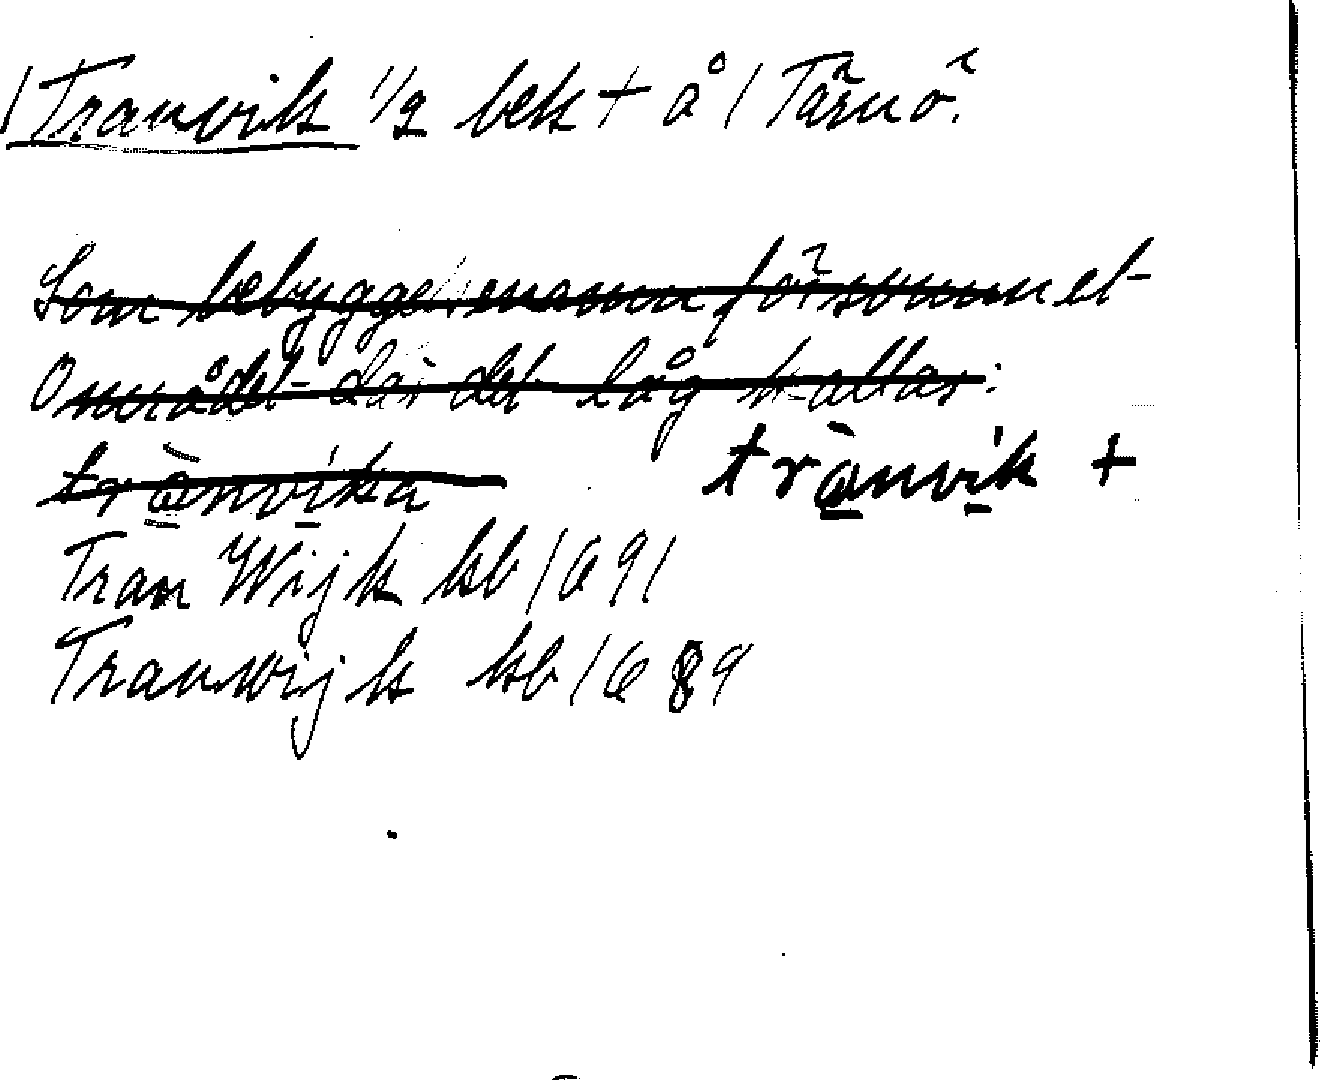 / Tranvik 1/2 bek + å / Tärnö.
Som bebyggelsenamn försvunnet
Området där det låg kallas:
trànvìka trànvìk +
Tran Wijk kb 1691
Tranwijk kb 1689